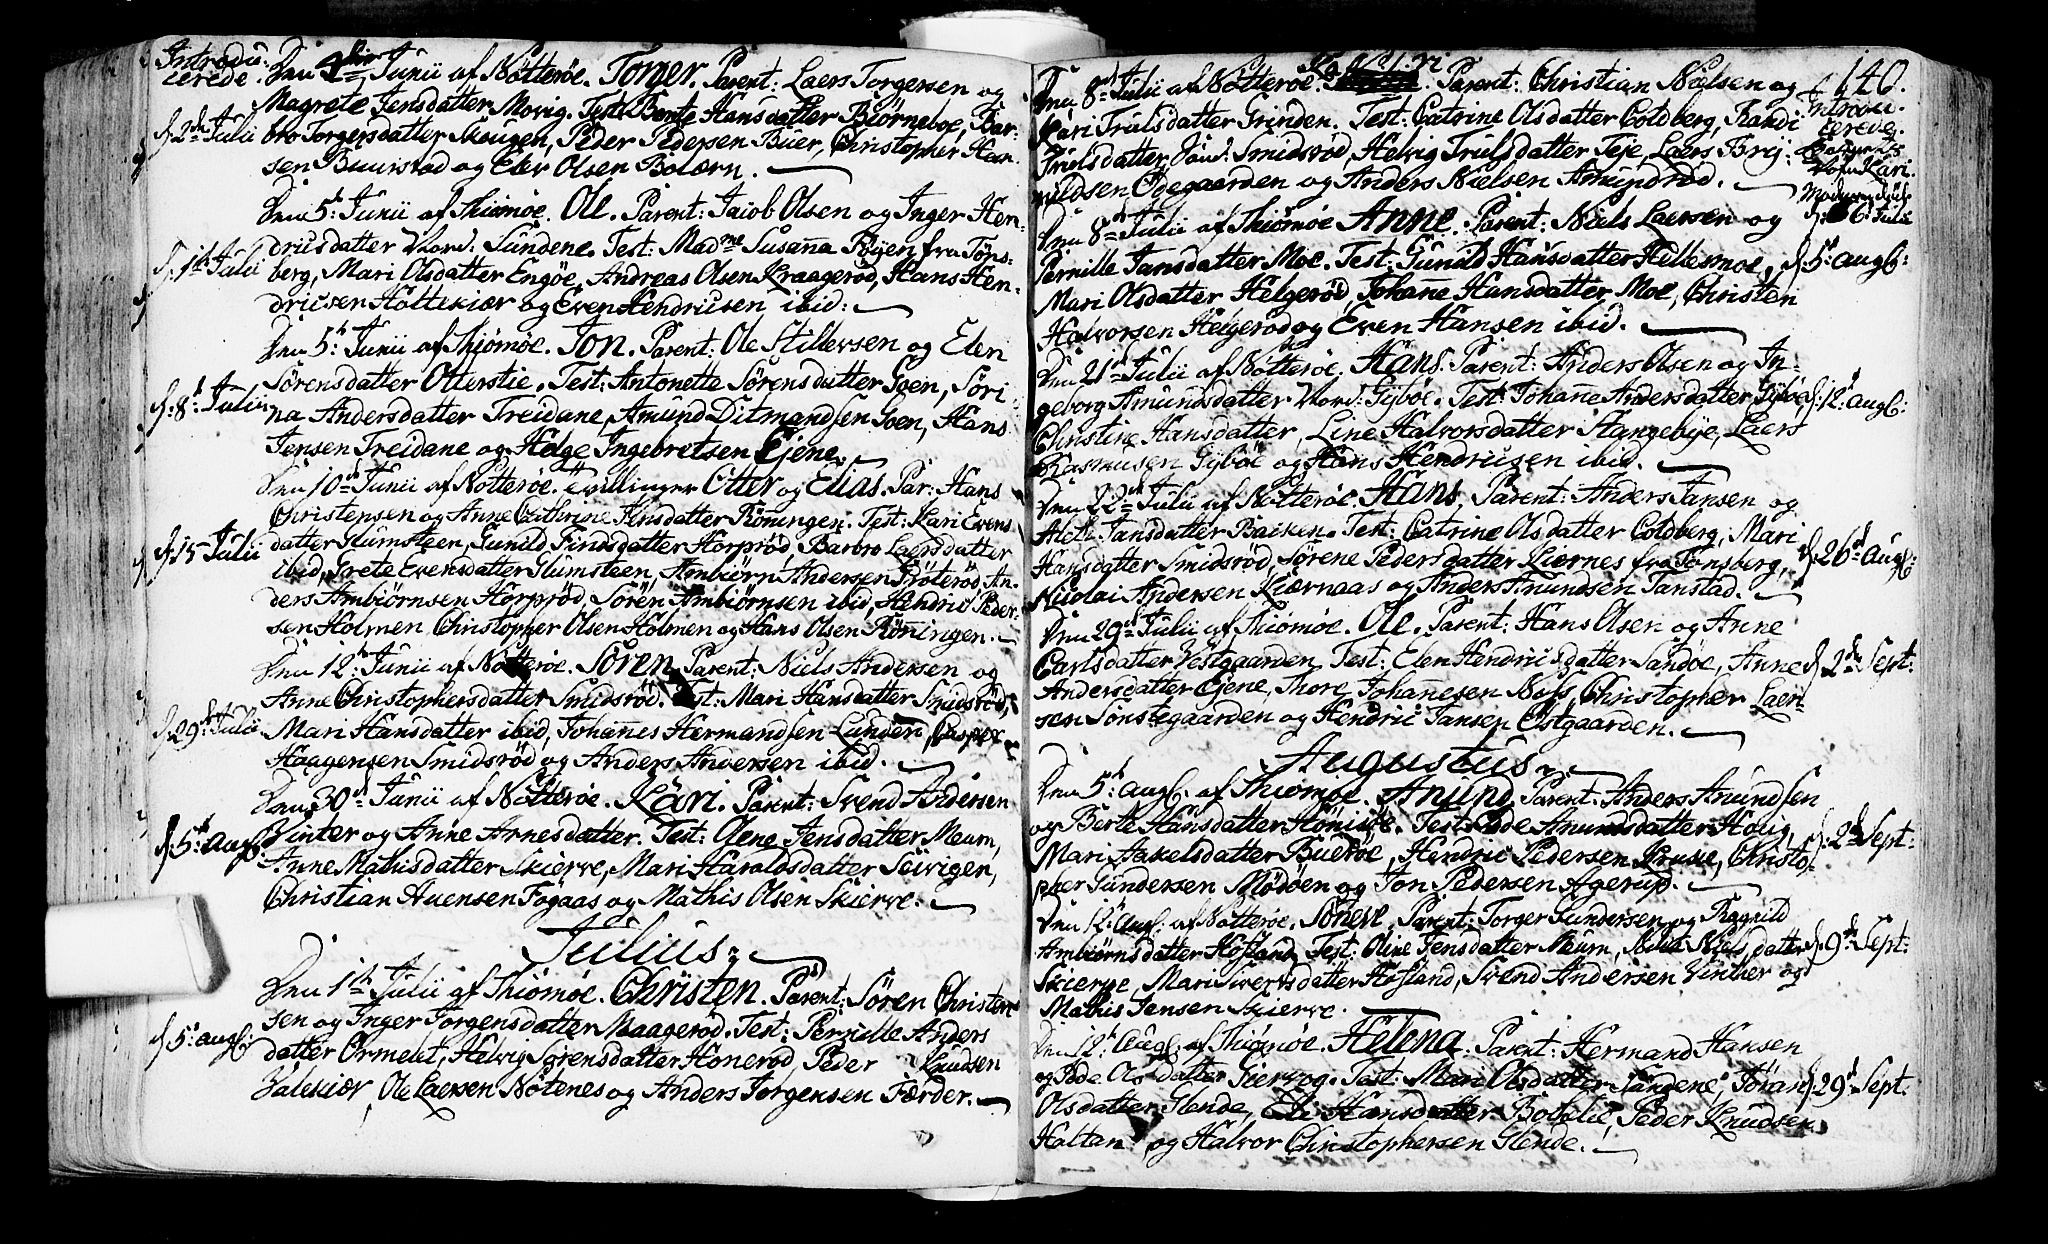 Introdu:
cerede.
Den 4de Junii af Nötteröe. Torger. Parent: Laers Torgersen og
Magrete Jensdatter Movig. Test: Bente Hansdatter Biörneboe, Bar-
d. 2de Julii
bro Torgersdatter Skougen, Peder Pedersen Buer, Christopher Han-
sen Buurstad og Elev Olsen Bolærn.
Den 5t Junii af Thiömöe. Ole. Parent: Jacob Olsen og Inger Hen-
dricsdatter Nord: Sundene. Test: Madme Susanna Böyen fra Töns-
d. 1t Julii
berg, Mari Olsdatter Engöe, Andreas Olsen Kraageröd, Hans Hen-
dricsen Holtekiær og Even Hendricsen ibid:
Den 5t Junii af Thiömöe. Jon. Parent: Ole Stillevsen og Elen
Sörensdatter Otterstie. Test: Antonette Sörensdatter Goen, Söri-
d. 8t Julii
na Andersdatter Treidane, Amund Ditmandsen Goen, Hans
Jensen Treidane og Helge Ingebretsen Ejene.
Den 10de Junii af Nötteröe. tvillinger Otter og Elias. Par: Hans
Christensen og Anne Cathrine Jensdatter Röningen. Test: Kari Evens-
datter Glumsteen, Gunild Finisdatter Horpröd, Barbro Laersdatter
d. 15 Julii
ibid, Grete Evensdatter Glumsteen, Ambiörn Andersen Gröteröd, An-
ders Ambiörnsen Horpröd, Sören Ambiörnsen ibid, Hendric Peder-
sen Holmen Christopher Olsen Holmen og Hans Olsen Röningen.
Den 12t Junii af Nötteröe. Sören. Parent: Niels Andersen og
Anne Christophersdatter Smidsröd. Test: Mari Hansdatter Smidsröd,
d. 29t Julii
Mari Hansdatter ibid, Johannes Hermandsen Lunden, Casper
Haagensen Smidsröd og Anders Andersen ibid.
Den 30te Junii af Nötteröe. Kari. Parent: Svend Andersen
Vinter og Anne Arnesdatter. Test: Olene Jensdatter Meum,
d. 5t augt:
Anne Mathisdatter Skierve, Mari Haraldsdatter Seivigen,
Christian Auensen Fogaas og Mathis Olsen Skierve.
Julius.
Den 1te Julii af Thiömöe. Christen. Parent: Sören Christen-
sen og Inger Torgensdatter Maageröd. Test: Pernille Anders
d. 5t augt:
datter Ormelet, Helvig Sörensdatter Honeröd, Peder Knudsen
Valekiær, Ole Laersen Nötenes og Anders Jörgensen Færder.
140.
Kari
Den 8de Julii af Nötteröe. Parent: Christian Nielsen og
Introdu:
cerede.
Kari Trulsdatter Grinden. Test: Catrine Olsdatter Coldberg, Randi
Trulsdatter Sönd: Smidsröd, Helvig Trulsdatter Teje, Laers Brij-
nildsen Ödegaarden og Anders Nielsen Amundröd.
Kari.
d. 6t Julii
Den 8de Julii af Thiömöe Anne. Parent: Niels Laersen og
Pernille Jansdatter Moe. Test: Gunild Hansdatter Hellesmoe,
d. 5t augt:
Mari Olsdatter Helgeröd, Johane Hansdatter Moe, Christen
Halvorsen Helgeröd og Even Hansen ibid.
Den 21de Julii af Nötteröe. Hans. Parent: Anders Olsen og In-
geborg Amundsdatter Nord: Gyböe. Test: Johane Andersdatter Gyböe,
d. 12t augt:
Christine Hansdatter, Line Halvorsdatter Stangebye, Laers
Rasmusen Gyböe og Hans Hendricsen ibid.
Den 22de Julii af Nötteröe. Hans. Parent: Anders Jansen og
Aleth: Jansdatter Backen. Test: Catrine Olsdatter Coldberg, Mari
Hansdatter Smidsröd, Sörene Pedersdatter Kiernes fra Tönsberg,
d. 26t Augt:
Nicolai Andersen Kiærnaas og Anders Amundsen Tanstad.
Den 29de Julii af Thiömöe. Ole. Parent: Hans Olsen og Anne
Carlsdatter Vestgaarden. Test: Elen Hendricsdatter Sandöe, Anne
d. 2de Sept:
Andersdatter Ejene, Thore Johannesen Næss, Christopher Laer-
sen Sönstegaarden og Hendric Jansen Östgaarden.
Augustus.
Den 5t augt. af Thiömöe. Amund. Parent: Anders Amundsen
og Berte Hansdatter Hönisöe. Test: Pede Amundsdatter Houg,
d. 2de Sept:
Mari Axelsdatter Bueröe, Hendric Pedersen Kruse, Christo-
pher Gundersen Mödöen og Jon Pedersen Agerup.
Den 12t Augt: af Nötteröe. Sörene. Parent: Torger Gundersen og Ragnild
Ambiörnsdatter Hofland. Test: Oline Jensdatter Meum, Nielsdatter
d. 9t Sept:
Skierve, Mari Siverdsdatter Hofland, Svend Andersen Vinther og
Mathis Jensen Skierve.
Den 12t Augt: af Thiömöe. Helena. Parent: Hermand Hansen
og Pede Olsdatter Giervog. Test: Mari Olsdatter Sundene, Jöran
d. 29t Sept:
Olsdatter Glende, Eli Hansdatter Bobelie, Peder Knudsen
Holtan og Halvor Christophersen Glende.